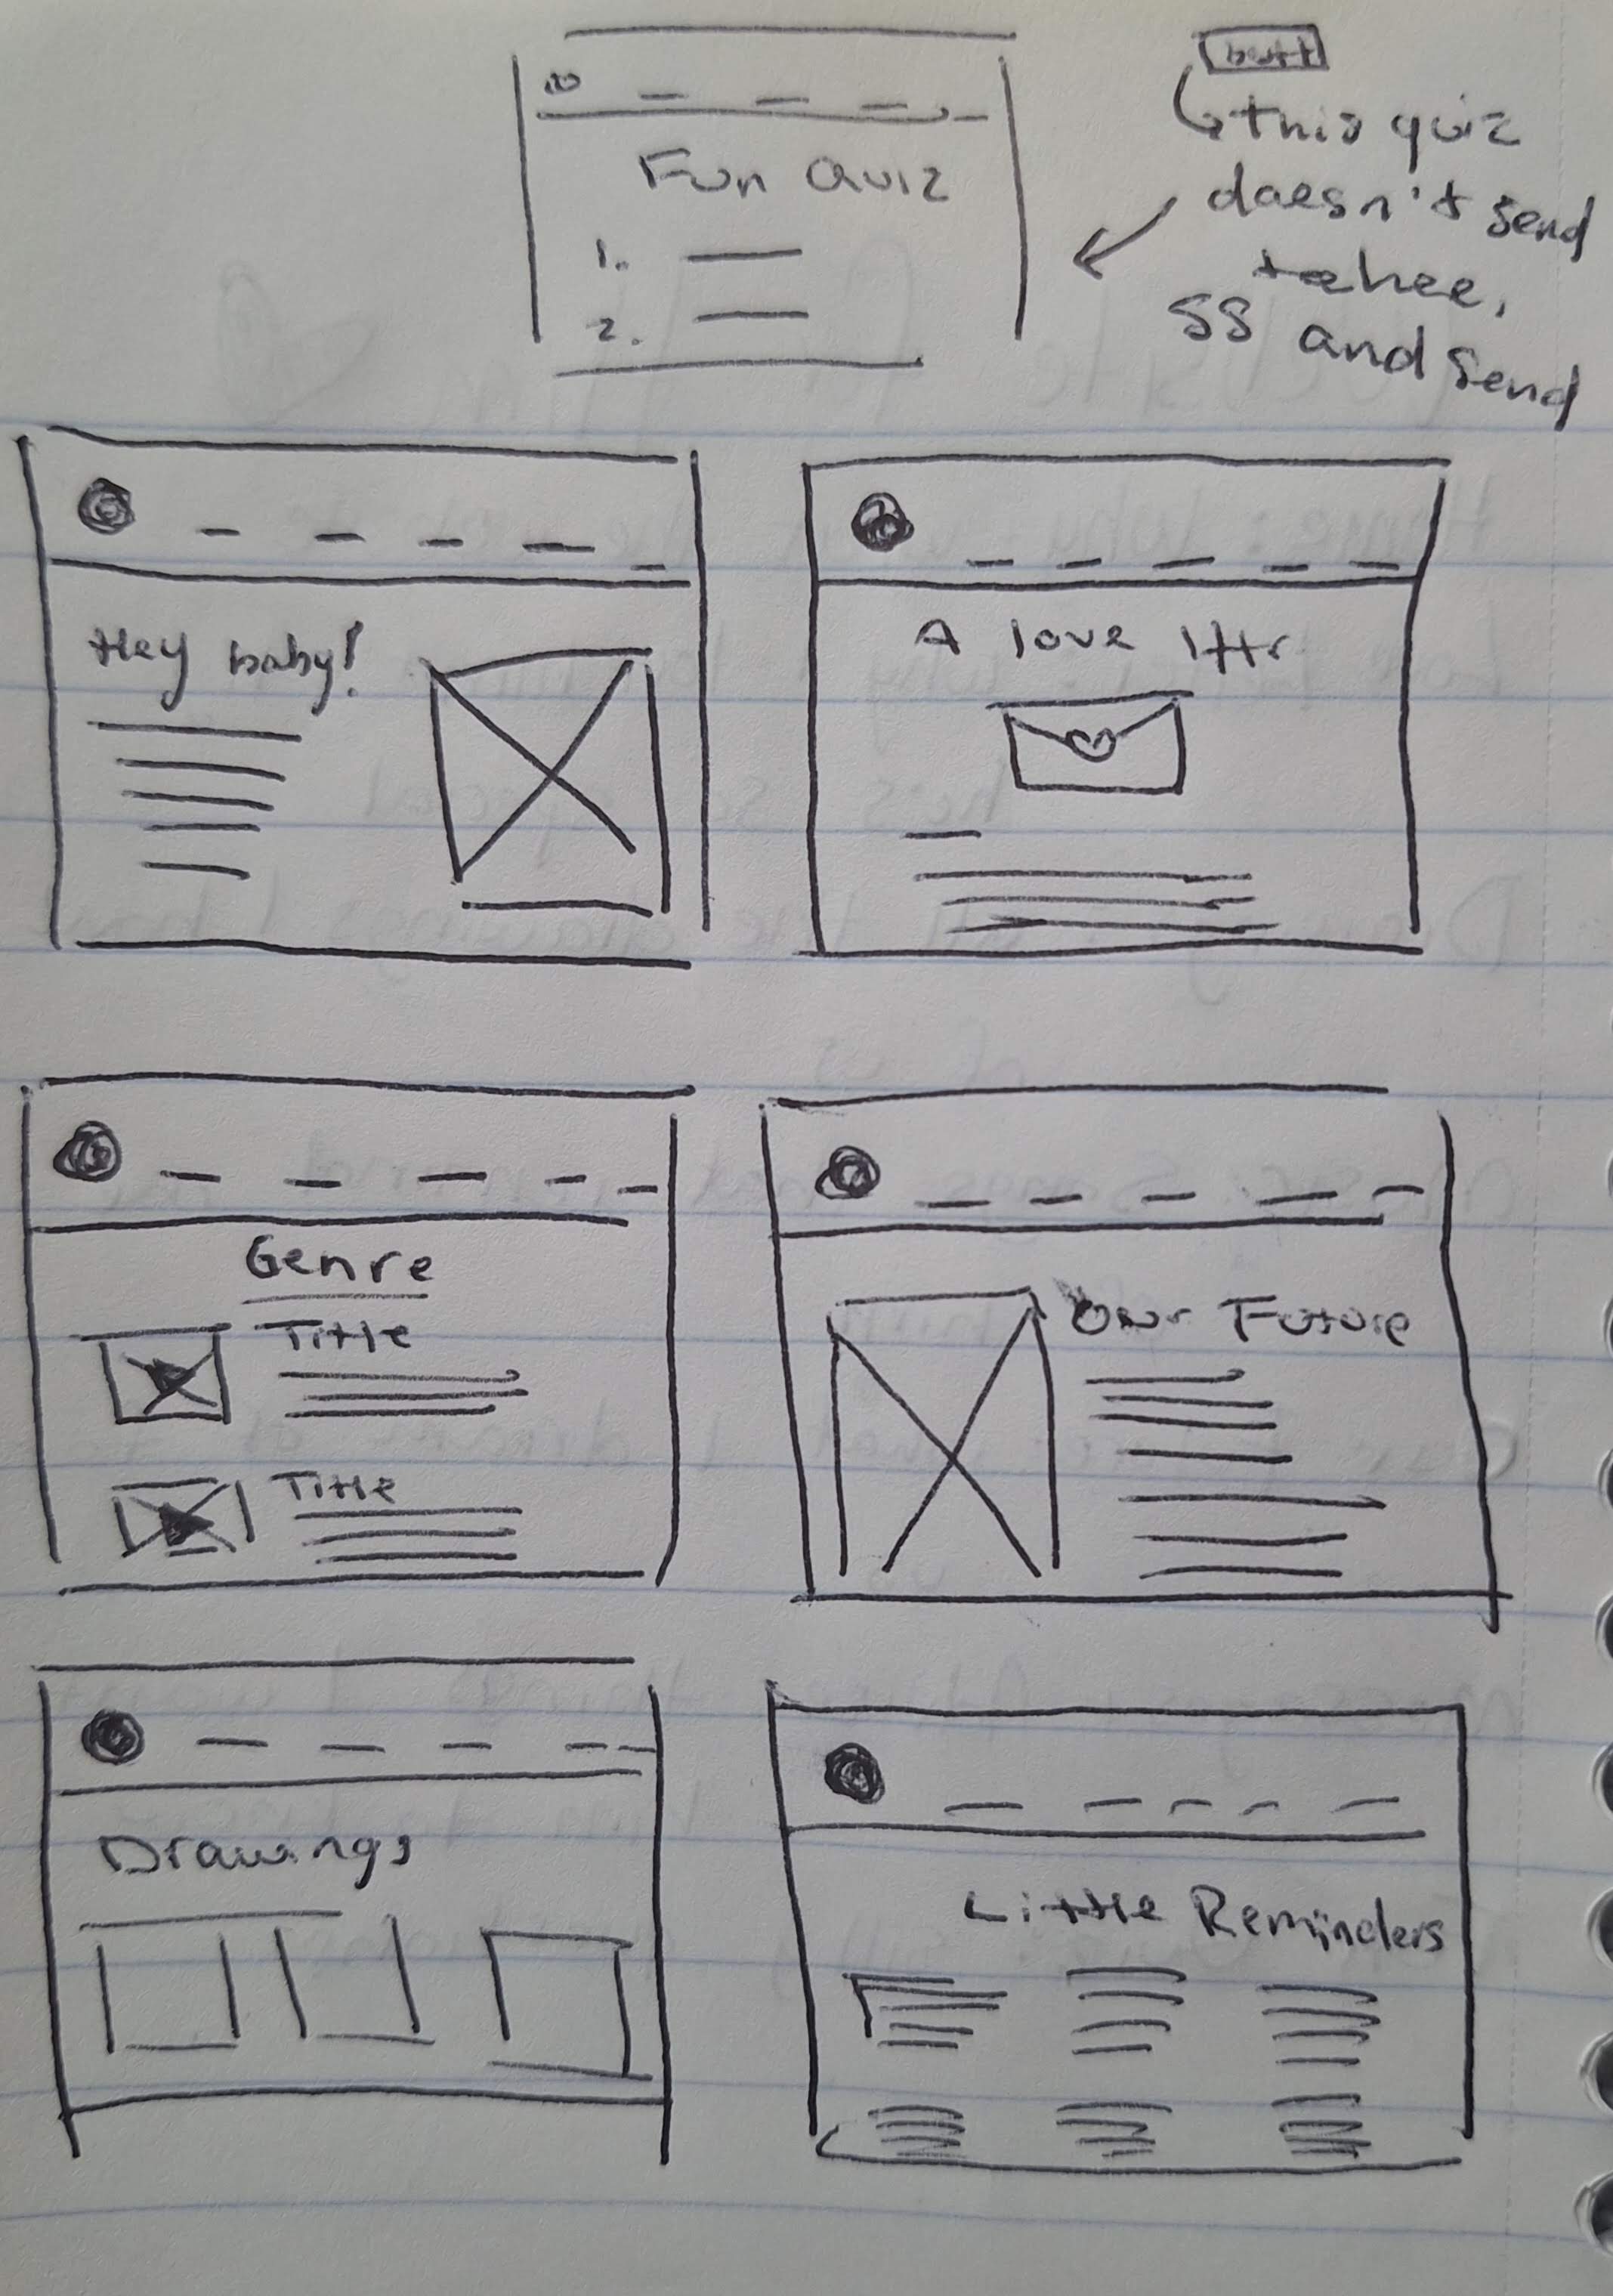 Fun Quiz
1.
2.
butt
this quiz
doesn't send
tehee,
SS and send
Hey baby!
A love lttr
Genre
Title
Title
Our Future
Drawings
Little Reminders